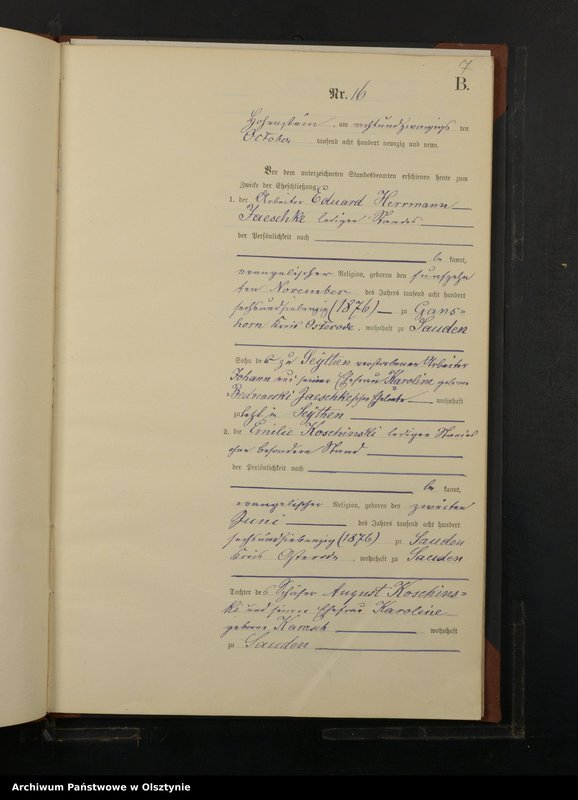 7
B.
Nr. 16
Hohenstein, am achtundzwanzigs ten
October tausend acht hundert neunzig und neun.
Vor dem unterzeichneten Standesbeamten erschienen heute zum
Zwecke der Eheschließung:
1. der Arbeiter Eduard Herrmann
Jaeschke ledigen Standes
der Persönlichkeit nach
be kannt,
evangelischer Religion, geboren den fünfzehn
ten November des Jahres tausend acht hundert
sechsundsiebenzig (1876) zu Gans=
horn Kreis Osterode, wohnhaft zu Sauden
Sohn des zu Seythen verstorbenen Arbeiter
Johann und seiner Ehefrau Karoline geborne
Bednarski Jaeschke'schen Eheleute wohnhaft
zuletzt in Seythen
2. die Emilie Koschinski ledigen Standes
ohne besondern Stand
der Persönlichkeit nach
be kannt,
evangelischer Religion, geboren den zweiten
Juni des Jahres tausend acht hundert
sechsundsiebenzig (1876) zu Sauden
Kreis Osterode, wohnhaft zu Sauden
Tochter des Schäfer August Koschins=
ki und seiner Ehefrau Karoline
geborne wohnhaft
zu Sauden
Archiwum Państwowe w Olsztynie